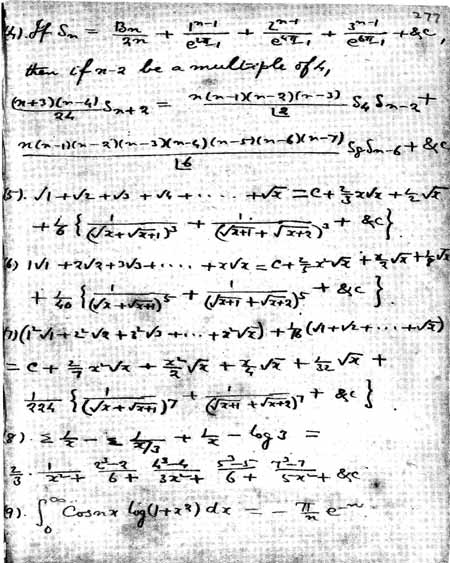 277
(4). If Sₙ = Bₙ/2n + 1ⁿ⁻¹/(e²π-1) + 2ⁿ⁻¹/(e⁴π-1) + 3ⁿ⁻¹/(e⁶π-1) + &c,
then if n-2 be a multiple of 4,
(n+3)(n-4)/24 Sₙ₊₂ = n(n-1)(n-2)(n-3)/|2 S₄ Sₙ₋₂ +
n(n-1)(n-2)(n-3)(n-4)(n-5)(n-6)(n-7)/|6 S₈ Sₙ₋₆ + &c
(5). √1 + √2 + √3 + √4 + ..... + √x = C + 2/3 x√x + 1/2 √x
+ 1/6 { 1/(√x+√x+1)³ + 1/(√x+1 + √x+2)³ + &c }
(6) 1√1 + 2√2 + 3√3 + ..... + x√x = C + 2/5 x²√x + x/2 √x + 1/8 √x
+ 1/40 { 1/(√x+√x+1)⁵ + 1/(√x+1 + √x+2)⁵ + &c }.
(7) (1²√1 + 2²√2 + 3²√3 + ... + x²√x) + 1/16 (√1 + √2 + ... + √x)
= C + 2/7 x²√x + x²/2 √x + x/4 √x + 1/32 √x +
1/224 { 1/(√x+√x+1)⁷ + 1/(√x+1 + √x+2)⁷ + &c }
(8). Σ 1/x - Σ 1/x/3 + 1/x - log 3 =
2/3 · 1/x²+ 2³-2/6+ 4³-4/3x²+ 5³-5/6+ 7³-7/5x²+ &c.
(9). ∫₀^∞ Cos nx log(1+x²) dx = - π/n e⁻ⁿ.